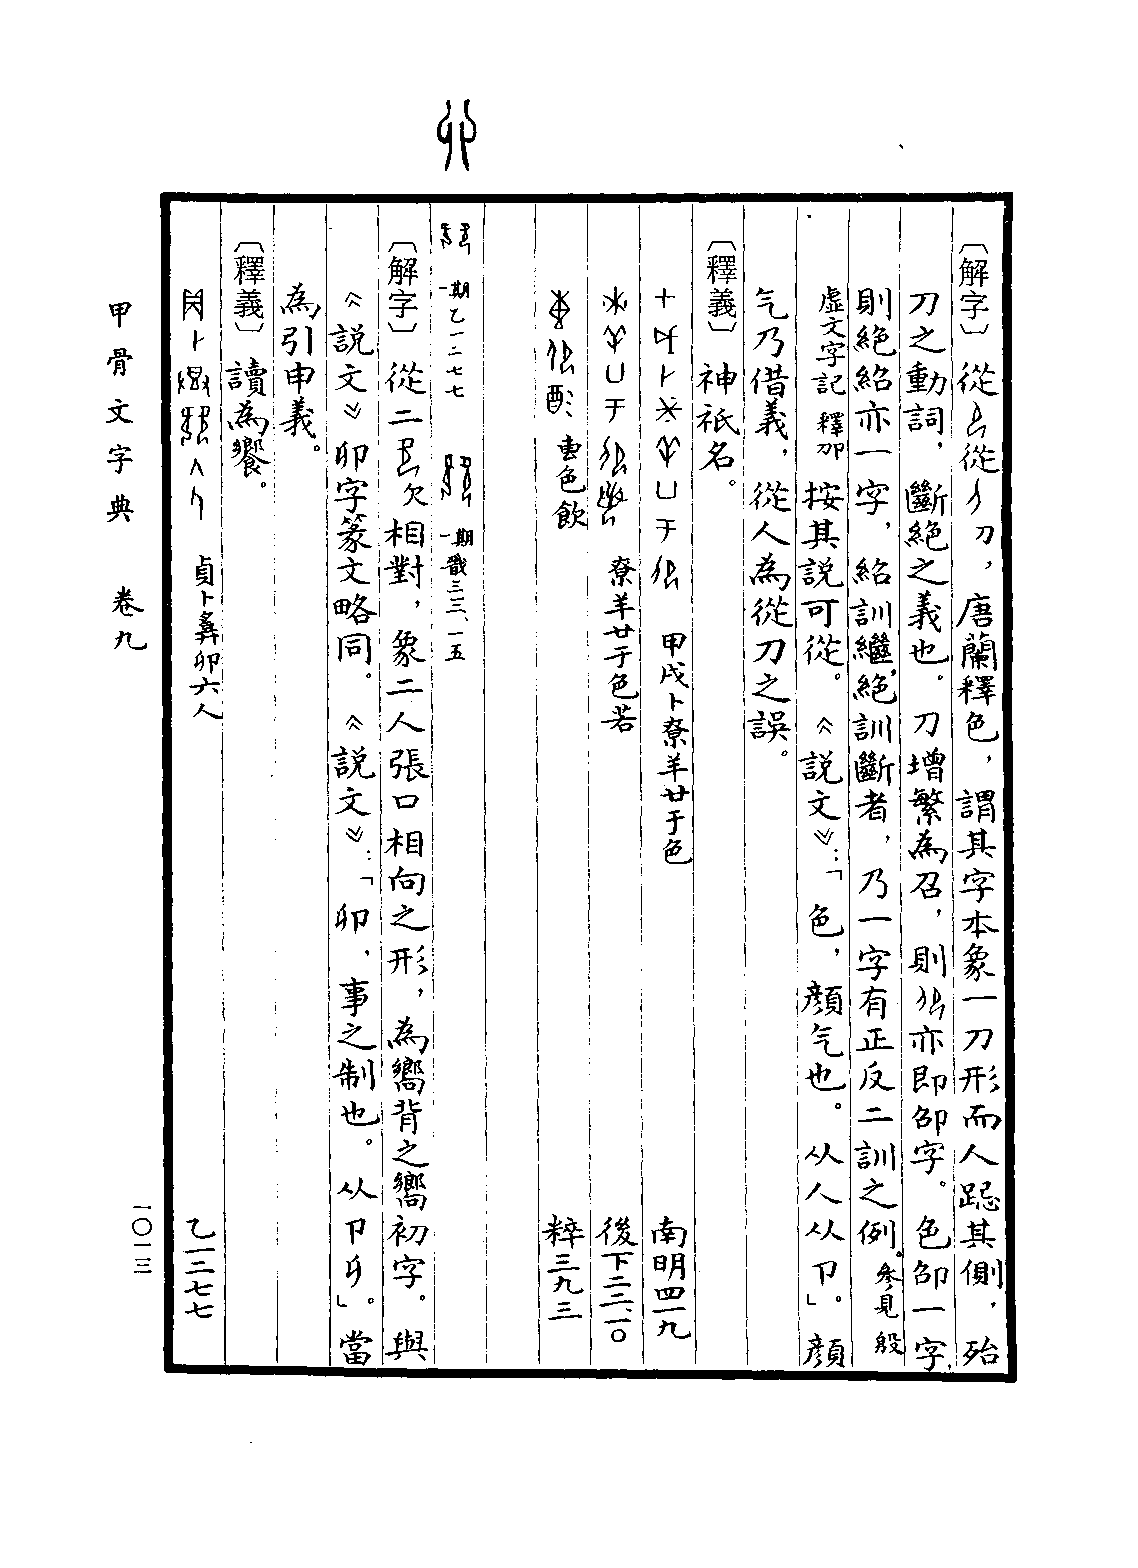 〔解字〕從從刀，唐蘭釋色，謂其字本象一刀形而人跽其側，殆
刀之動詞，斷絕之義也。刀增繁為召，則亦即卲字。色卲一字
則絕紹亦一字，紹訓繼，絕訓斷者，乃一字有正反二訓之例。參見殷
虛文字記釋卲按其說可從。《說文》：「色，顏气也。从人从卪」。顏
气乃借義，從人為從刀之誤。
〔釋義〕神祇名。
甲戌卜尞羊廿于色 南明四一九
尞羊廿于色若 後下二二.一〇
叀色飲 粹三九三
一期乙一二七七 一期戩三三.一五
〔解字〕從二欠相對，象二人張口相向之形，為嚮背之嚮初字。與
《說文》卯字篆文略同。《說文》：「卯，事之制也。从卪𠨎」。當
為引申義。
〔釋義〕讀為饗。
貞卜彝卯六人 乙一二七七
甲骨文字典 卷九
一〇一三